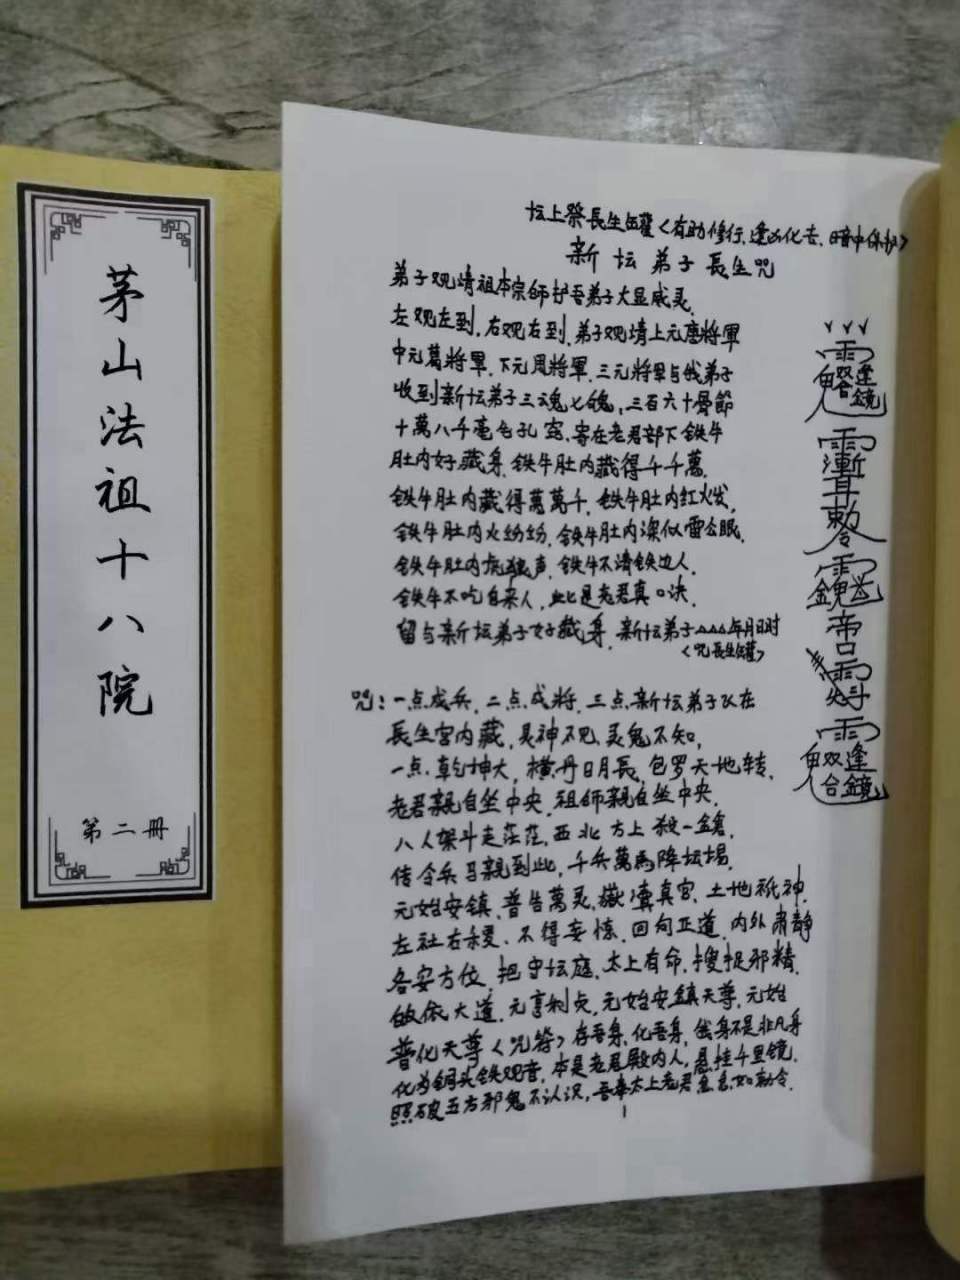 茅山法祖十八院
第二册
坛上祭長生罐<有助修行.逢凶化吉.暗中保护>
新坛弟子長生咒
弟子观靖祖本宗师护吾弟子大显威灵.
左观左到.右观右到.弟子观靖上元唐將軍
中元葛將軍.下元周將軍.三元將軍与俄弟子
收到新坛弟子三魂七魄.三百六十骨節
十萬八千毫毛孔窍.寄在老君部下铁牛
肚内好藏身.铁牛肚内藏得千千萬.
铁牛肚内藏得萬萬千.铁牛肚内红火炎.
铁牛肚内火纷纷.铁牛肚内深似雷公眠.
铁牛肚内虎狼声.铁牛不请铁边人.
铁牛不吃自来人.此是老君真口决.
留与新坛弟子好藏身.新坛弟子△△△年月日时
<咒長生罐>
咒:一点成兵.二点成將.三点新坛弟子以在
長生宫内藏.灵神不见.灵鬼不知.
一点.乾坤大.横丹日月長.包罗天地转.
老君親自坐中央.祖师親自坐中央.
八人架斗走茫茫.西北方上殺一鎗.
传令兵马親到此.千兵萬馬降坛場.
元始安镇.普告萬灵.嶽瀆真官.土地祇神.
左社右稷.不得妄惊.回向正道.内外肃静
各安方位.把守坛庭.太上有命.搜捉邪精.
皈依大道.元亨利贞.元始安鎮天尊.元始
普化天尊<咒符>存吾身.化吾身.俄身不是非凡身
化为铜头铁观音.本是老君殿内人.悬挂千里镜.
照破五方邪鬼不认识.吾奉太上老君急急如勅令.
1